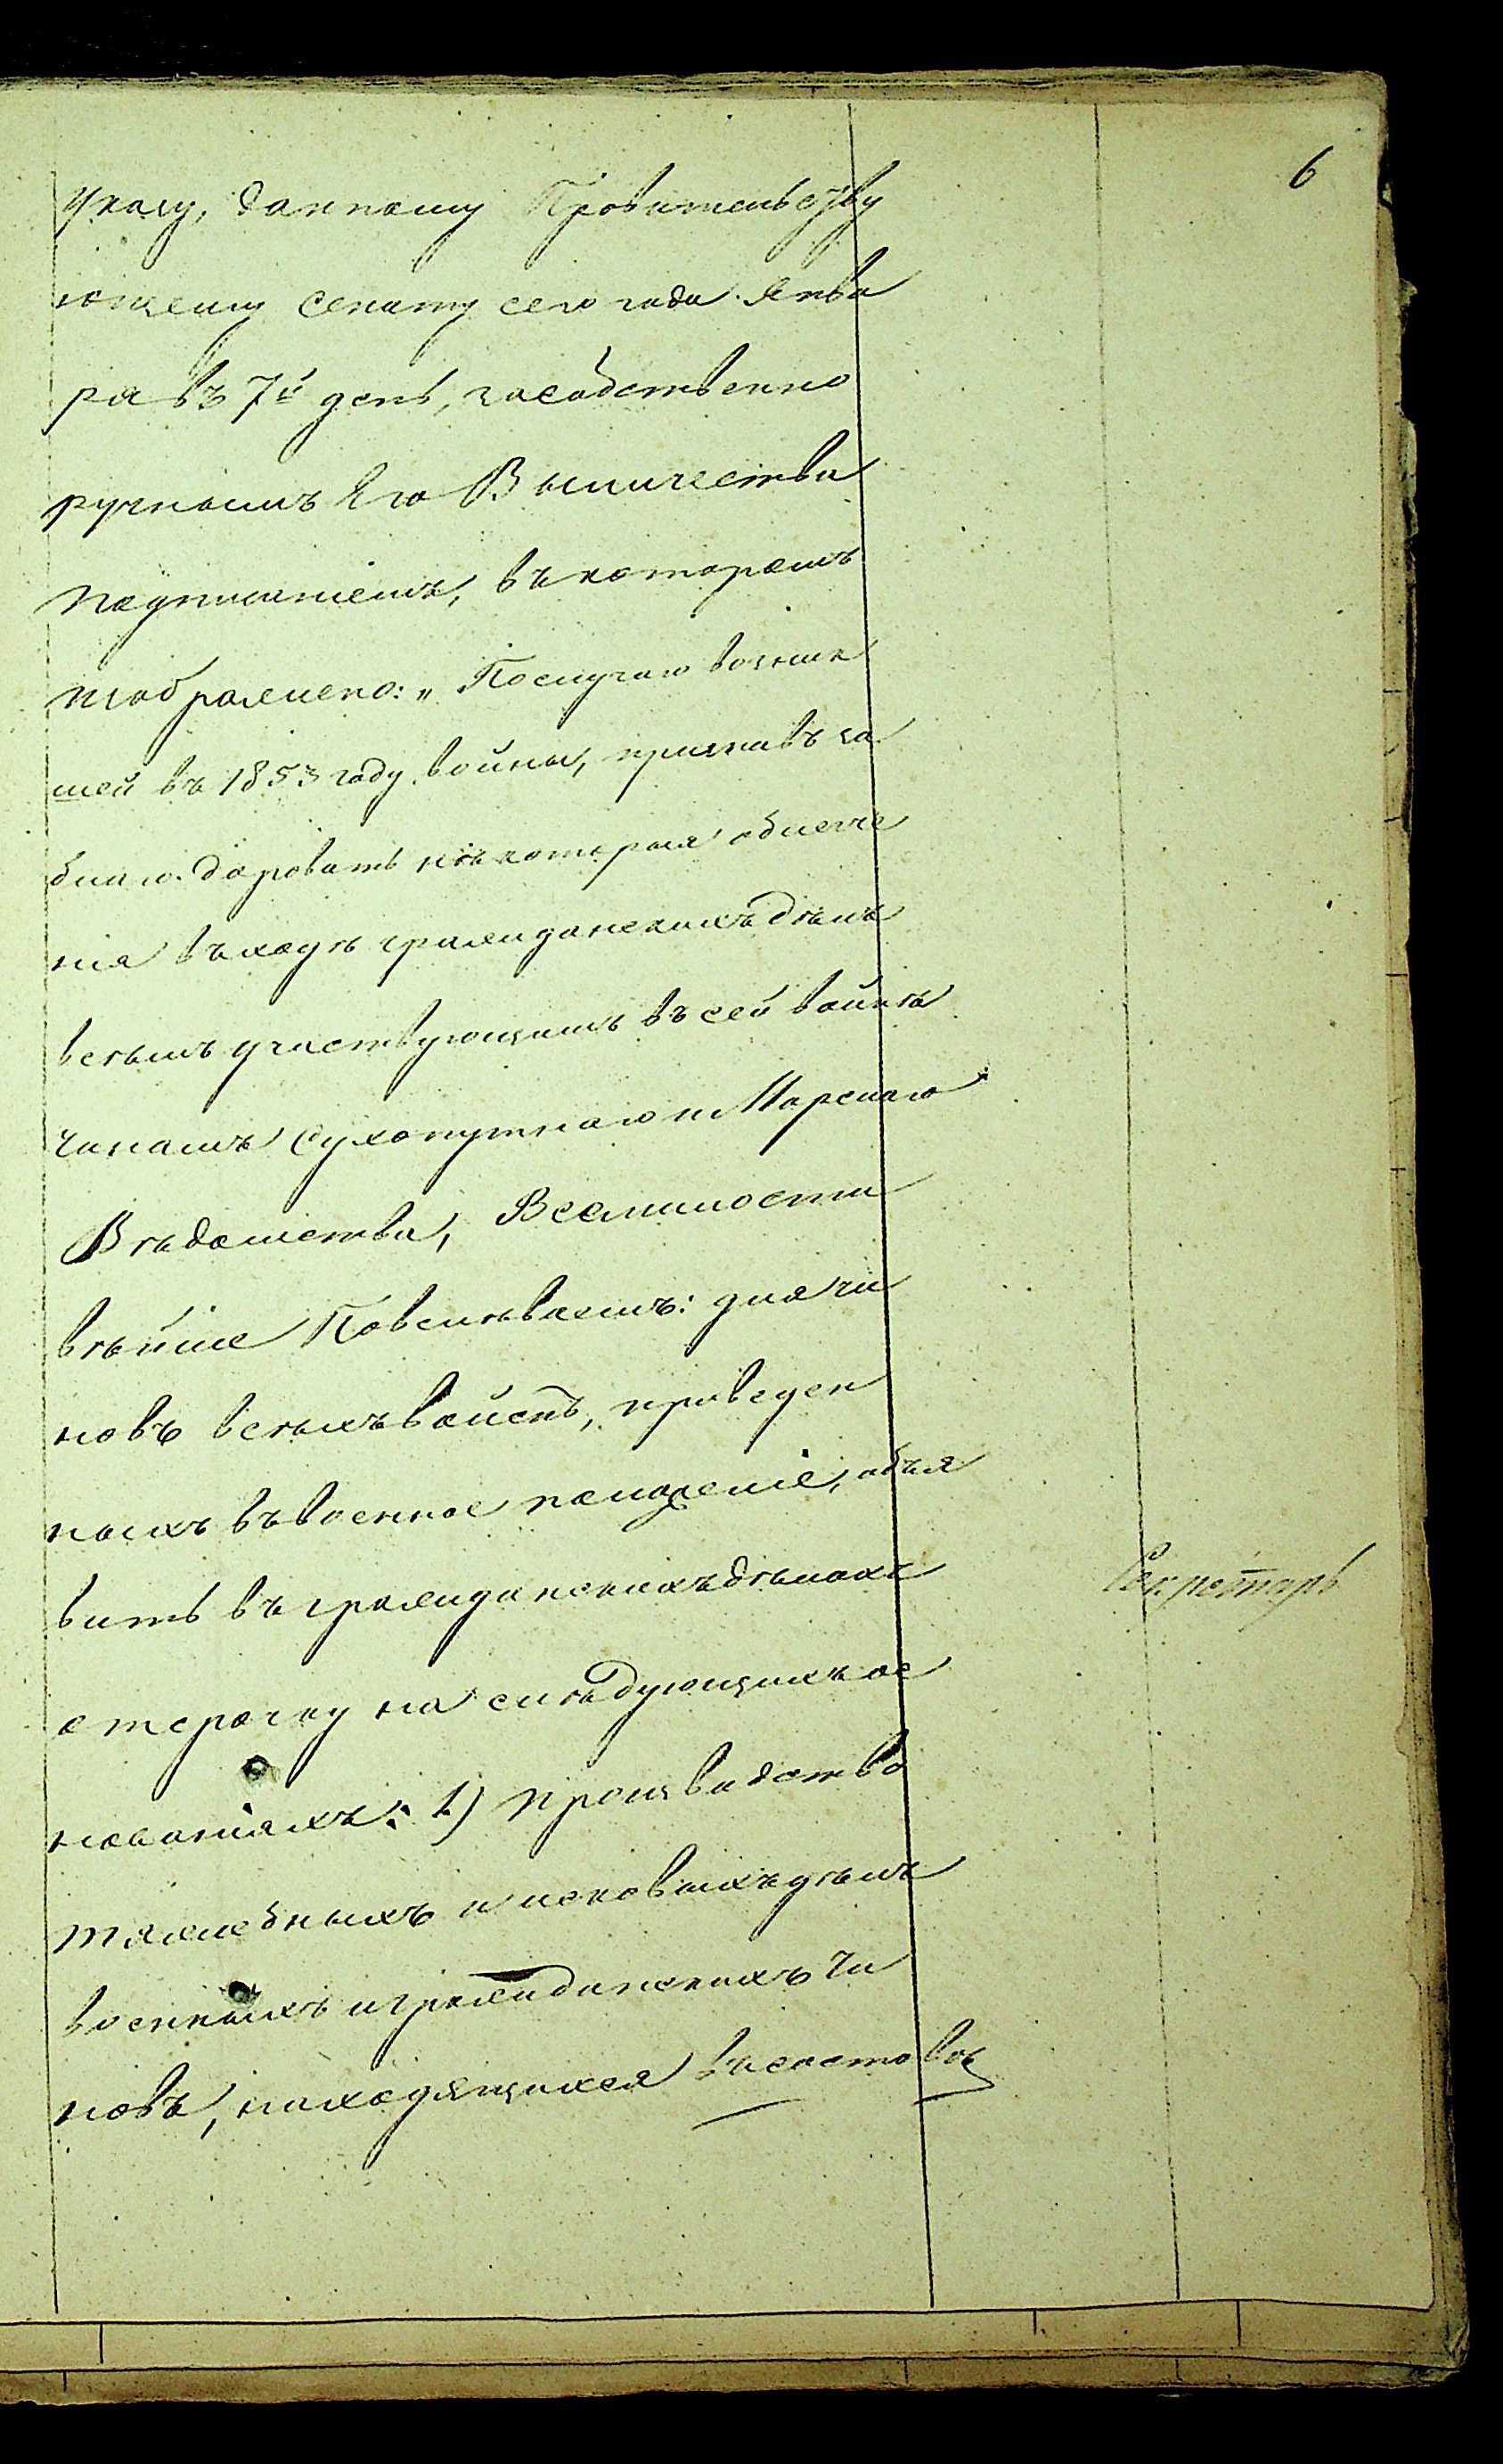 6
Указу, данному Правительству
ющему Сенату сего года Янва
ря въ 7й день, засобственно
ручнымъ Его Величества
подписаніемъ, въ которомъ
изображено: „По случаю возник
шей въ 1853 году войны, признавъ за
благо даровать нѣкоторыя облегче
нія въ ходѣ гражданскихъ дѣлъ
всѣмъ участвующимъ въ сей войнѣ
чинамъ Сухопутнаго и Морскаго
Вѣдомства, Всемилости
вѣйше Повелѣваемъ: для чи
новъ всѣхъ войскъ, приведен
ныхъ въ военное положеніе, объя
вить въ гражданскихъ дѣлахъ
отсрочку на слѣдующихъ ос
нованіяхъ: 1) Производство
тяжебныхъ и исковыхъ дѣлъ
военныхъ и гражданскихъ чи
новъ, находящихся въ составѣ
Секретарь